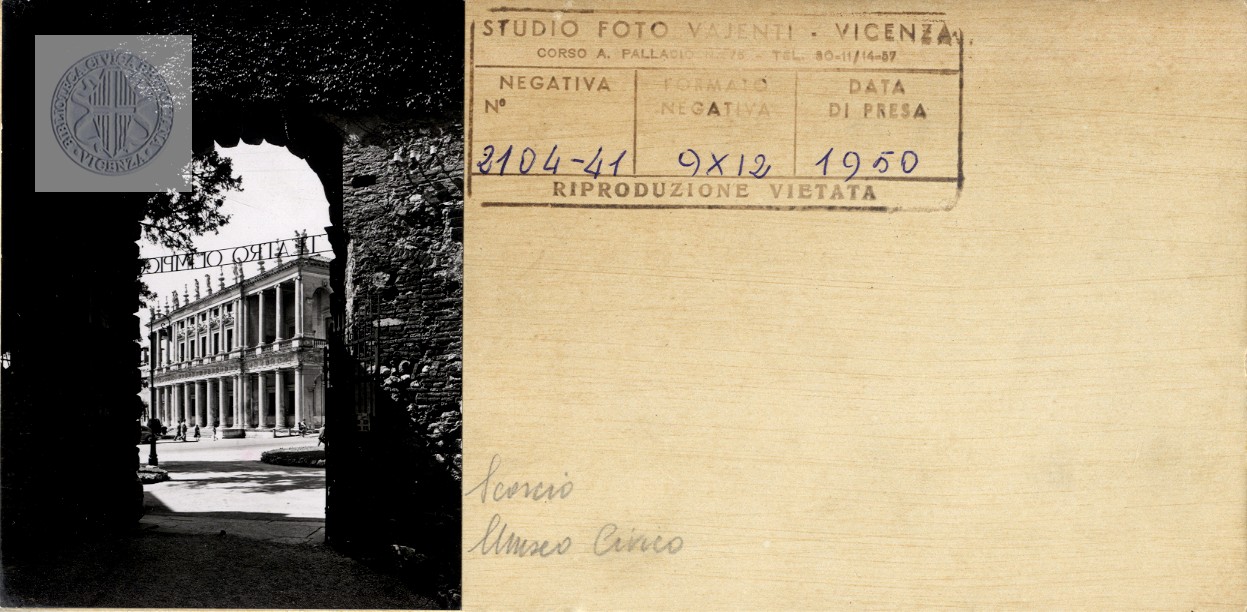 BIBLIOTECA CIVICA BERTOLIANA
· VICENZA ·
TEATRO OLIMPICO
STUDIO FOTO VAJENTI - VICENZA
CORSO A. PALLADIO TEL.
NEGATIVA
N°
2104-41
FORMATO
NEGATIVA
9X12
DATA
DI PRESA
1950
RIPRODUZIONE VIETATA
Scorcio
Museo Civico